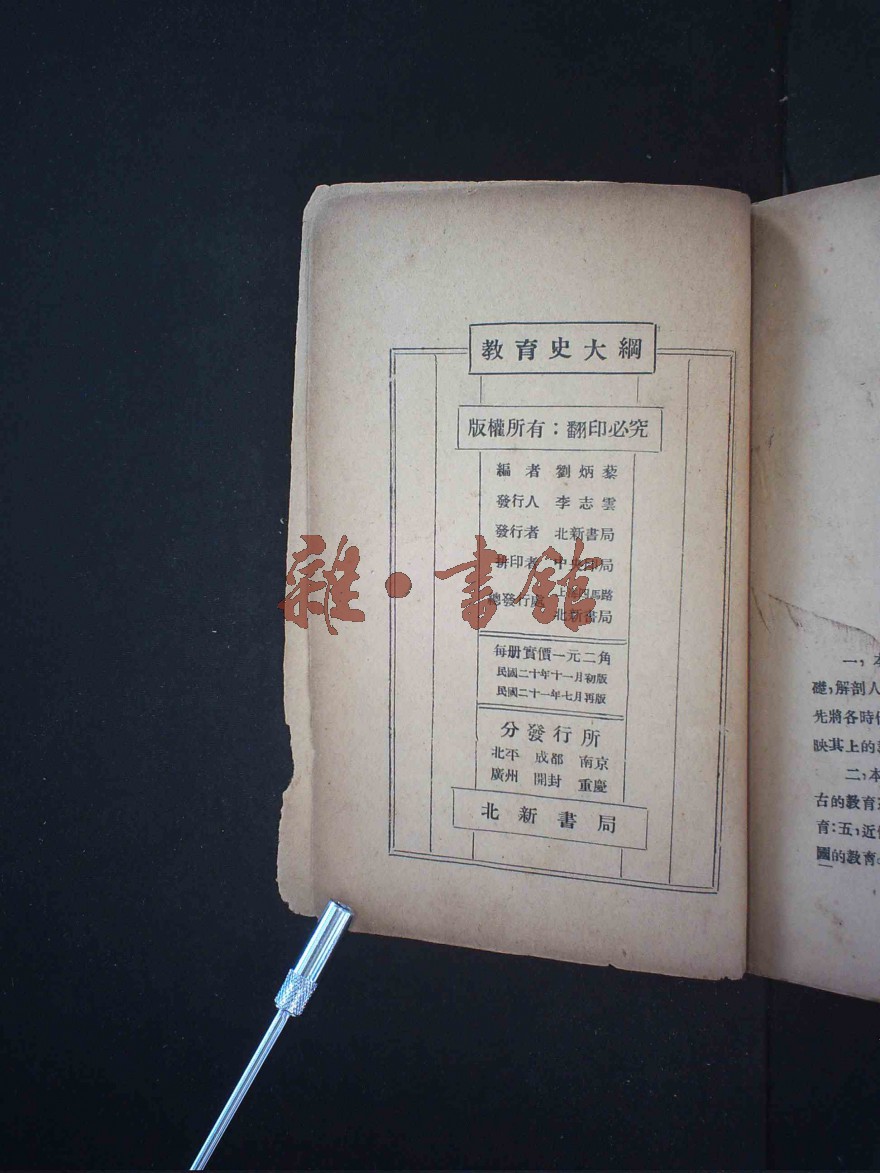 教育史大綱
版權所有：翻印必究
編者 劉炳藜
發行人 李志雲
發行者 北新書局
排印者 中央印局
總發行處 上海四馬路
北新書局
每册實價一元二角
民國二十年十一月初版
民國二十一年七月再版
分發行所
北平 成都 南京
廣州 開封 重慶
北新書局
雜·書館
一，本
礎，解剖人
先將各時
映其上的
二，本
古的教育
育：五，近
國的教育